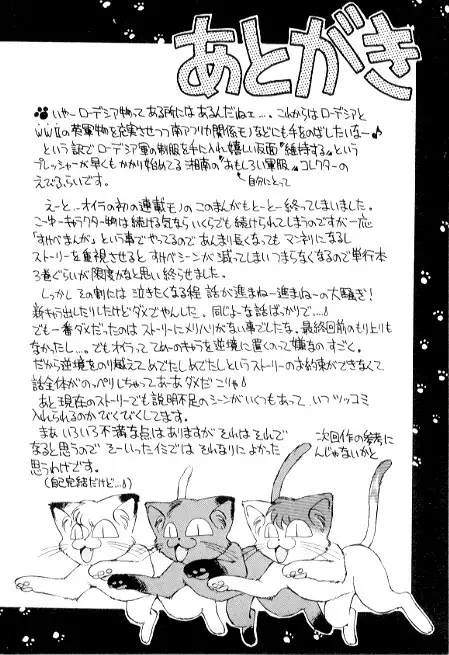 あとがき
いやーローデシア物ってある所にはあるんだねェ…。これからはローデシアと
WWⅡの英軍物を充実させつつ南アフリカ関係モノなどにも手をのばしたいなー♪
という訳でローデシア軍の制服を手に入れ嬉しい反面"維持する"という
プレッシャーが早くもかかり始めてる湘南の"おもしろい軍服"コレクターの
えびふらいです。
自分にとって
えーと…オイラの初の連載モノのこのまんがもとーとー終ってしまいました。
こーゆーキャラクター物は続ける気ならいくらでも続けられてしまうのですが一応
「すけべまんが」という事でやってるのであんまり長くなってもマンネリになるし
ストーリーを重視させるとすけべシーンが減ってしまいつまらなくなるので単行本
3巻ぐらいが限度かなと思い終らせました。
しかしその割には泣きたくなる程話が進まねー進まねーの大騒ぎ!
新キャラ出したりしたけどダメでやんした。同じよーな話ばっかりで…♪
でも一番ダメだったのはストーリーにメリハリがない事でしたな。最終回前のもり上りも
なかったし…。でもオイラっててめーのキャラを逆境に置くのって嫌なのすごく。
だから逆境をのり越えてめでたしめでたしというストーリーのお約束ができなくて
話全体がのっぺりしちゃってあーあダメだこりゃ♪
あと現在のストーリーでも説明不足のシーンがいくつもあって、いつツッコミ
入れられるのかびくびくしてます。
まあいろいろ不満な点はありますがそれはそれで次回作の参考に
なると思うのでそーいったイミではそれなりによかったんじゃないかと
思うわけです。
(自己完結だけど…♪)